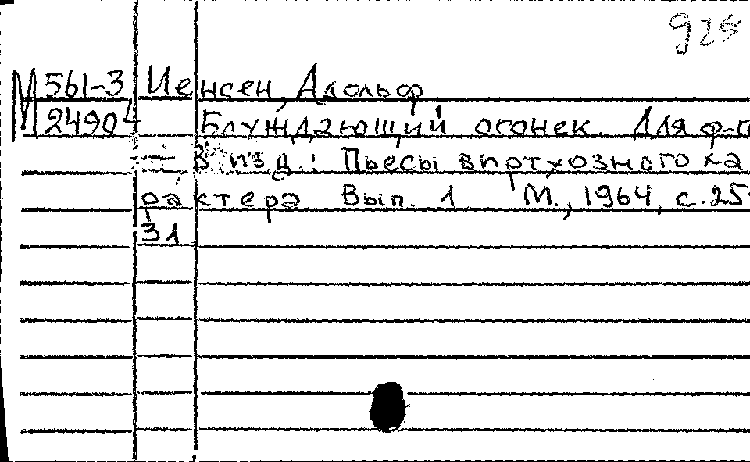 925
М 561-3 Иенсен, Адольф
2490 Блуждающий огонек. Для ф-п
В изд.: Пьесы виртуозного ха
рактера Вып. 1 М., 1964, с. 25-
31